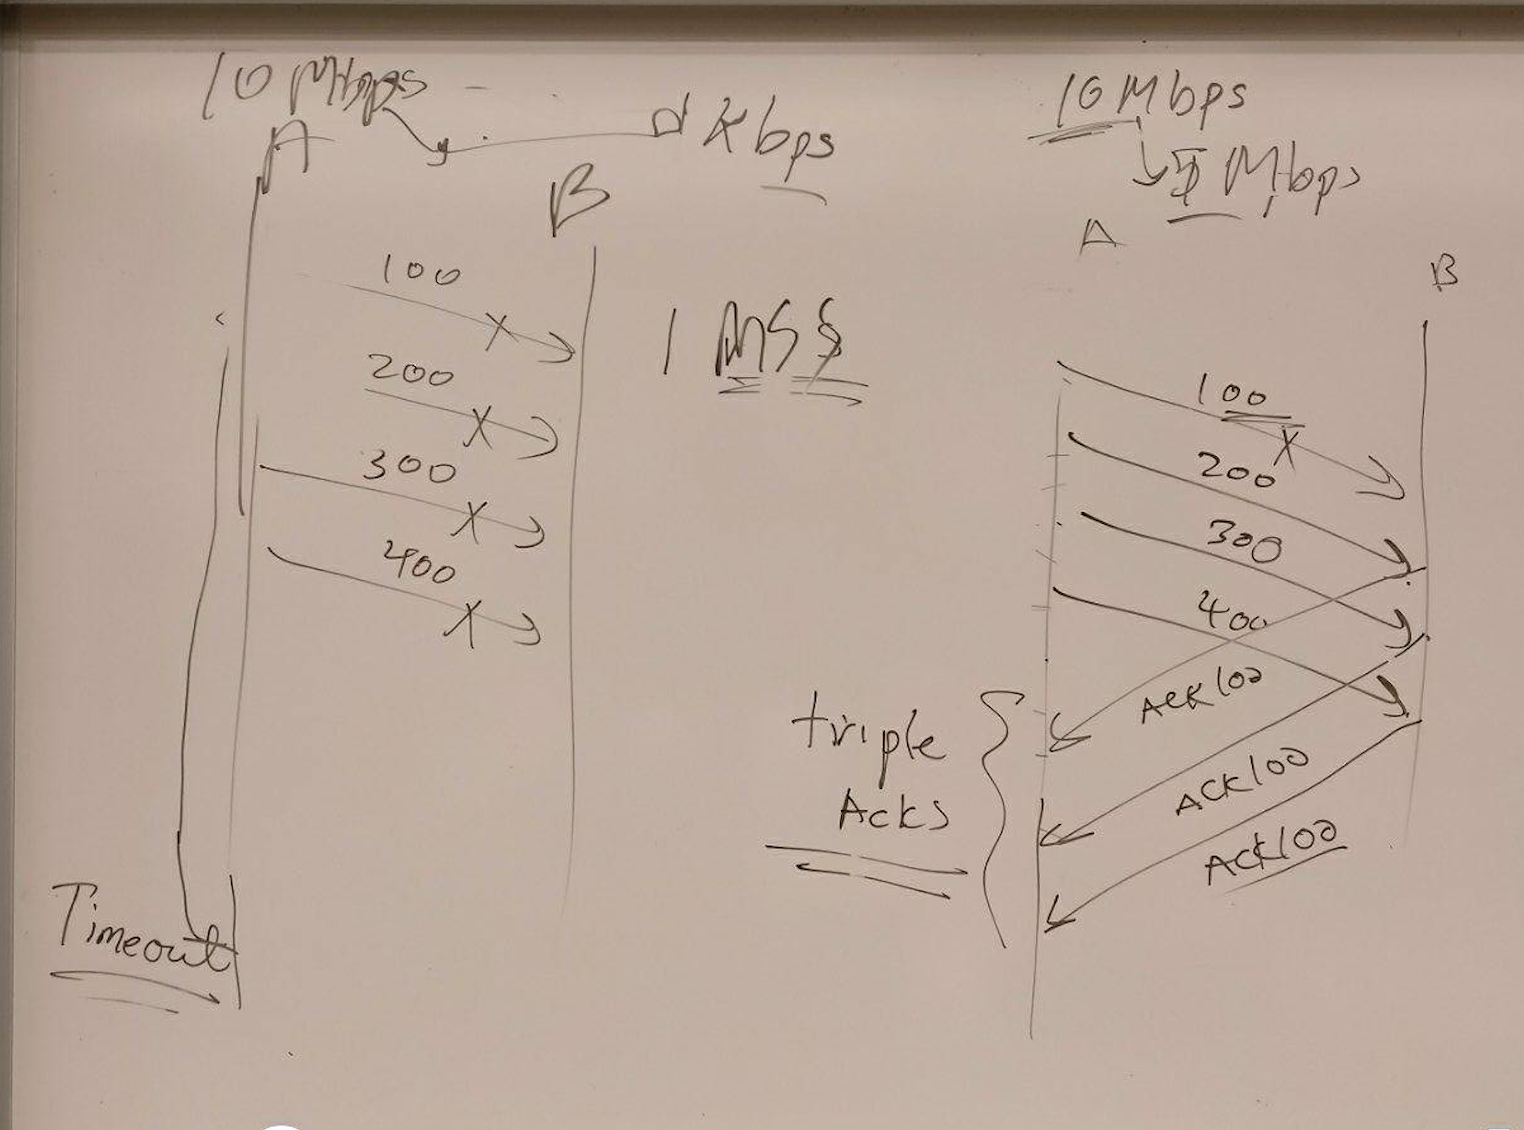 10 Mbps
A
Kbps
B
100
X
200
X
300
X
400
X
Timeout
1 MSS
10 Mbps
5 Mbps
A
B
100
X
200
300
400
ACK100
ACK100
ACK100
triple
Acks